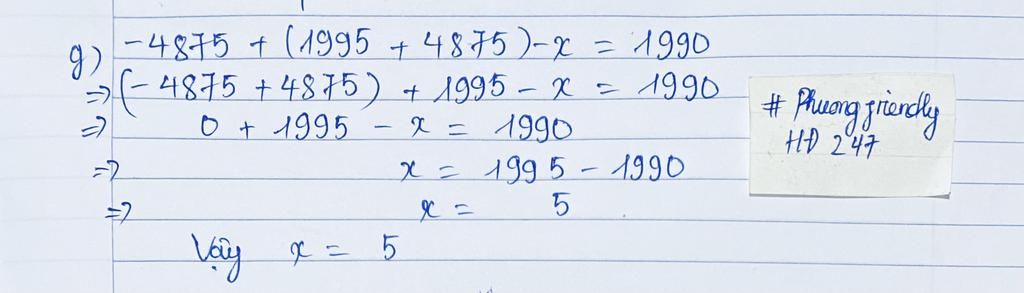 g) -4875 + (1995 + 4875) - x = 1990
=> (-4875 + 4875) + 1995 - x = 1990
=> 0 + 1995 - x = 1990
=> x = 1995 - 1990
=> x = 5
Vậy x = 5
# Phuongfriendly
HĐ 247